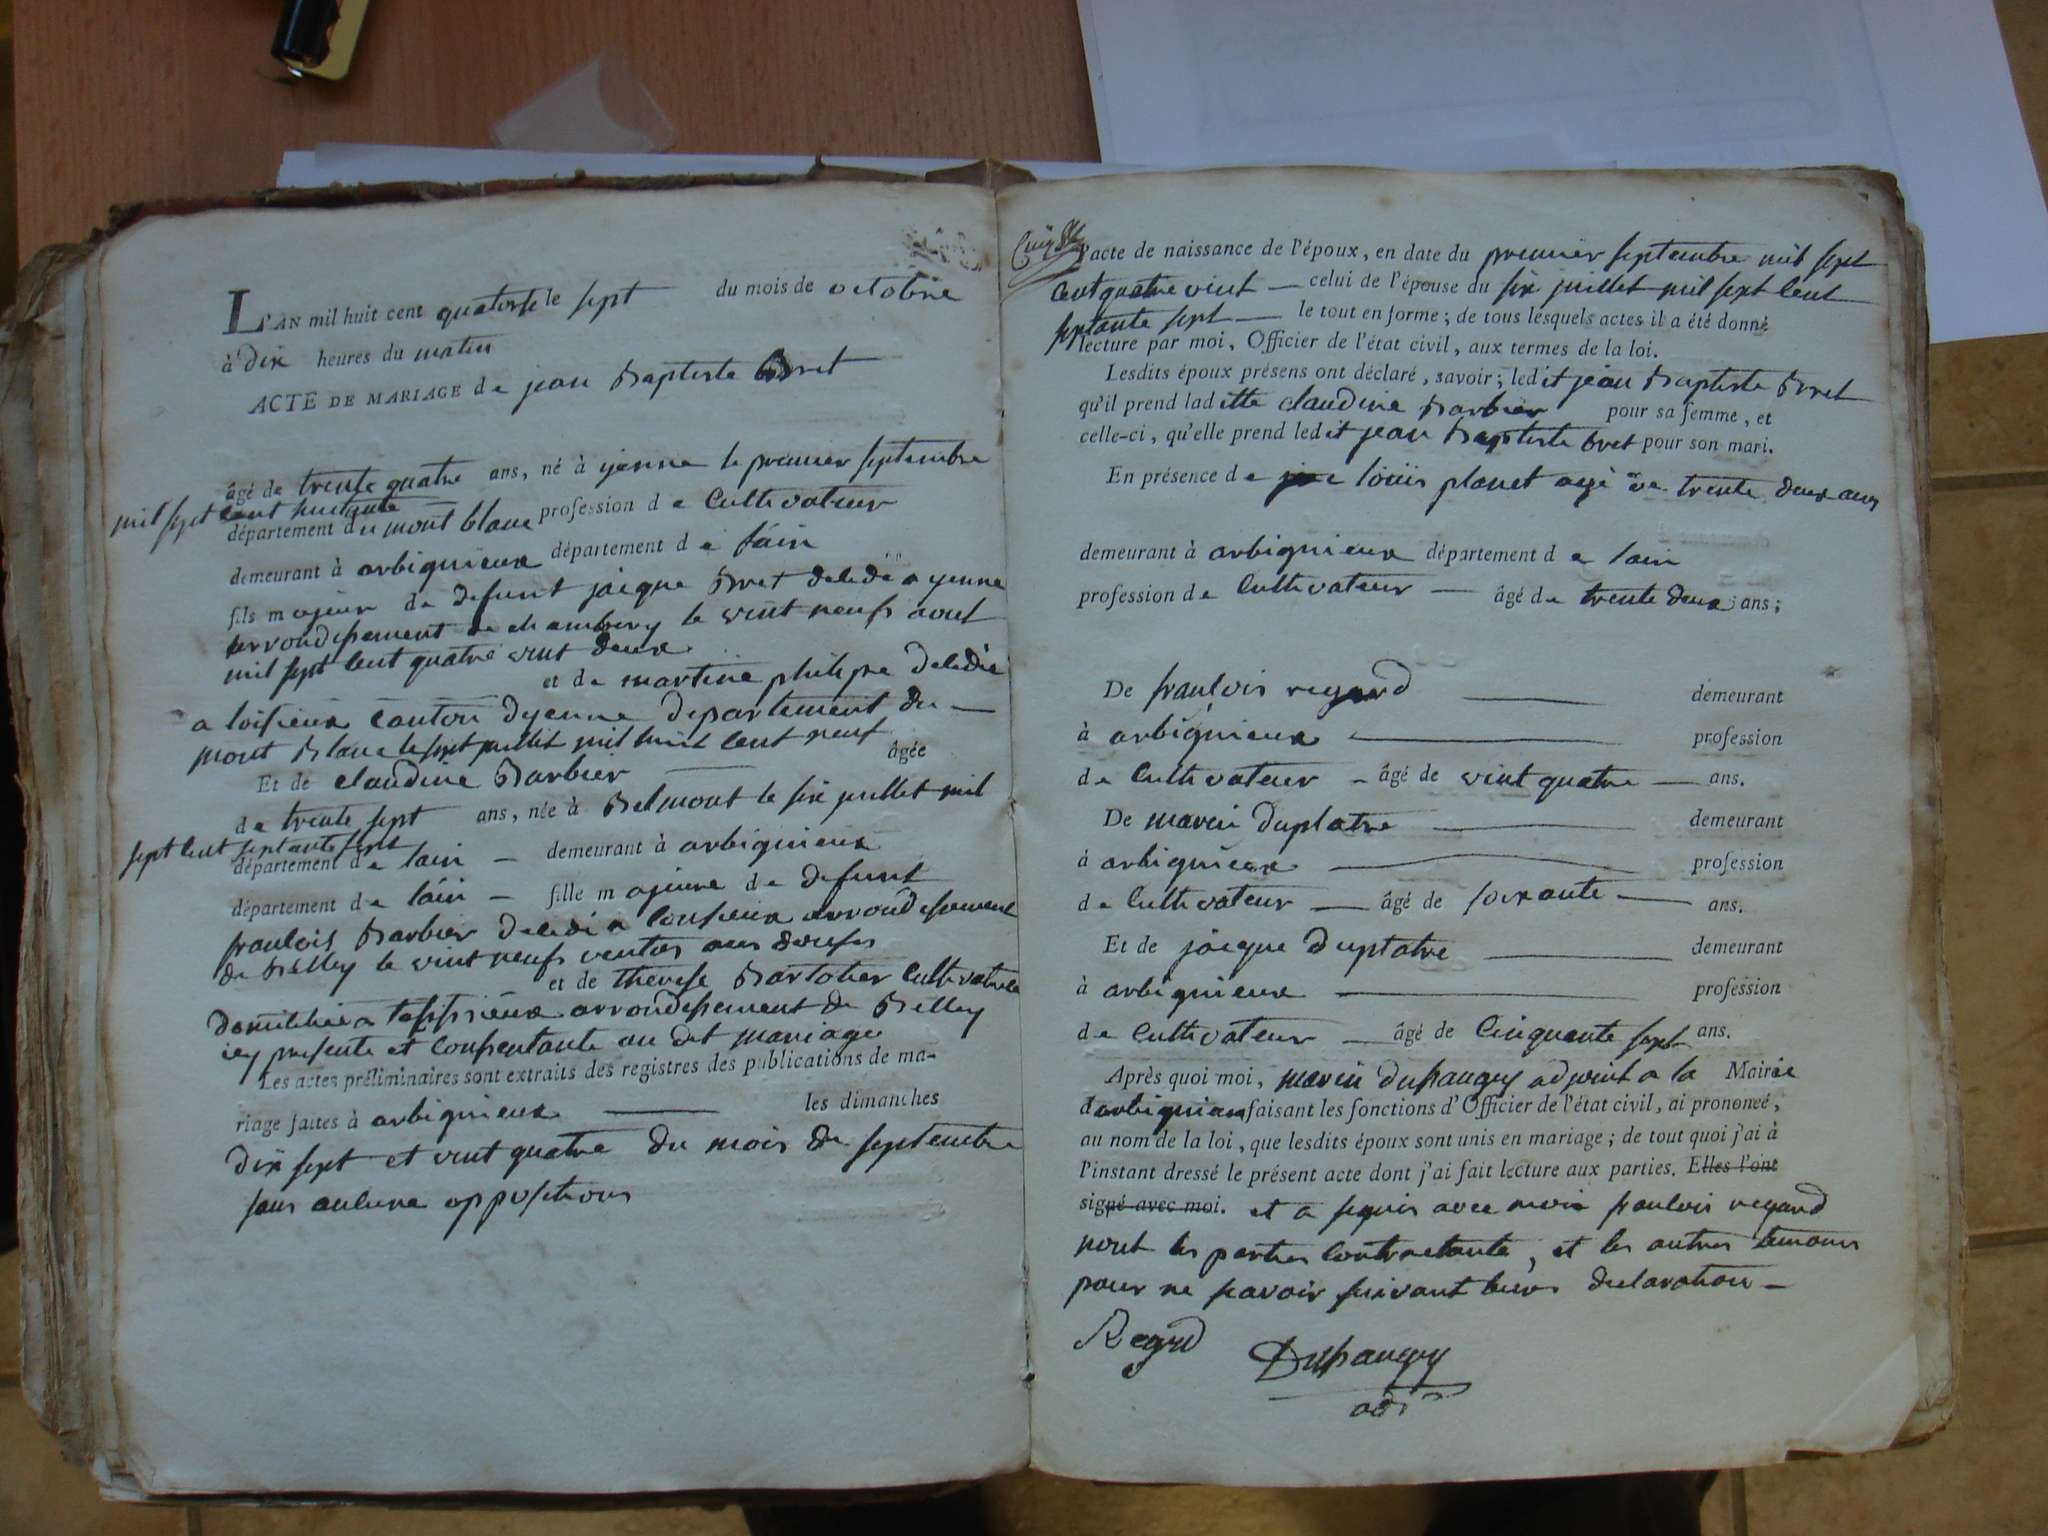 L'AN mil huit cent quatorse le sept du mois de octobre
à Dix heures du matin
ACTE DE MARIAGE de jean Baptiste Bret
âgé de trente quatre ans, né à yenne le premier septembre
mil sept cent huitante
département du mont blanc profession de Cultivateur
demeurant à arbignieux département de l'ain
fils majeur de defunt jacque Bret deledé a yenne
arrondissement de chambery le vint neufs aout
mil sept cent quatre vint deux
et de martine philipe deledée
a loisieux canton dyenne departement du
mont Blanc le sept juillit mil huit cent neuf
Et de claudine Barbier âgée
de trente sept ans, née à Belmont le six juillet mil
sept cent septante sept
département de lain demeurant à arbignieux
département de l'ain fille majeure de defunt
francois Barbier deledé a arrondissement
de Belley le vint neufs ventos ans
et de therese Cultivatrice
domiciliée a arrondissement de Belley
icy presente et consentante au dit mariage
Les actes préliminaires sont extraits des registres des publications de ma-
riage faites à arbignieux les dimanches
dix sept et vint quatre du mois de septembre
sans aucune oppositions
L'acte de naissance de l'époux, en date du premier septembre mil sept
cent quatre vint celui de l'épouse du six juillet mil sept cent
septante sept le tout en forme; de tous lesquels actes il a été donné
lecture par moi, Officier de l'état civil, aux termes de la loi.
Lesdits époux présens ont déclaré, savoir; ledit jean Baptiste Bret
qu'il prend ladette claudine Barbier pour sa femme, et
celle-ci, qu'elle prend ledit jean Baptiste Bret pour son mari.
En présence de louis planet agé de trente deux ans
demeurant à arbignieux département de lain
profession de Cultivateur âgé de trente deux ans;
De francois regard demeurant
à arbignieux profession
de Cultivateur âgé de vint quatre ans.
De marin duplatre demeurant
à arbignieux profession
de Cultivateur âgé de soixante ans.
Et de jacque duplatre demeurant
à arbignieux profession
de Cultivateur âgé de Cinquante sept ans.
Après quoi moi, marin adjoint a la Mairie
darbignieux faisant les fonctions d'Officier de l'état civil, ai prononcé,
au nom de la loi, que lesdits époux sont unis en mariage; de tout quoi j'ai à
l'instant dressé le présent acte dont j'ai fait lecture aux parties. Elles l'ont
signé avec moi. et a signés avec moi francois regard
nont les parties contractante, et les autres temoins
pour ne savoir suivant leurs declaration
Regard
adj